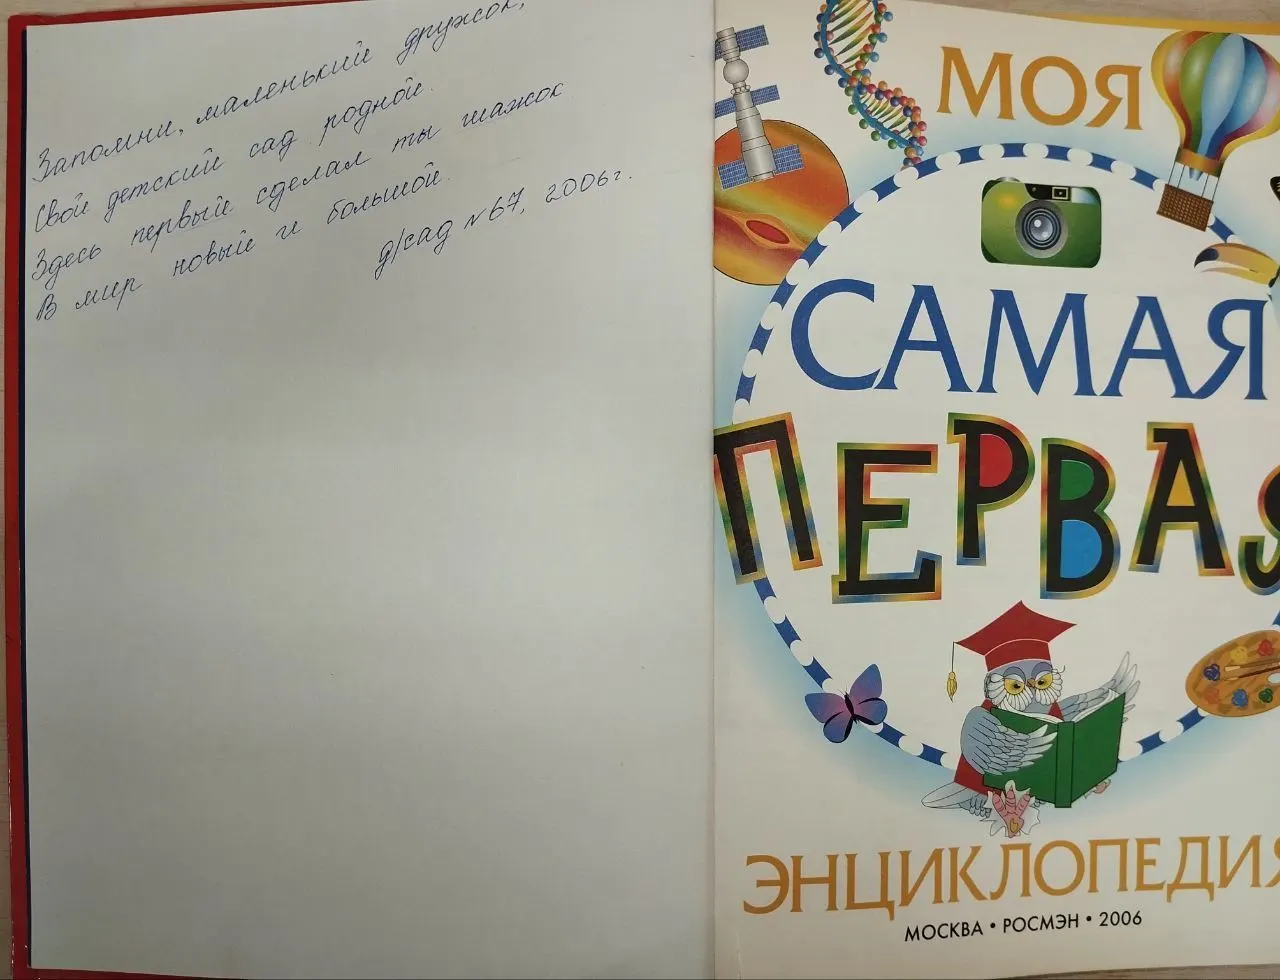 Запомни, маленький дружок,
Свой детский сад родной.
Здесь первый сделал ты шажок
В мир новый и большой.
д/сад №67, 2006г.
МОЯ
САМАЯ
ПЕРВАЯ
ЭНЦИКЛОПЕДИЯ
МОСКВА • РОСМЭН • 2006